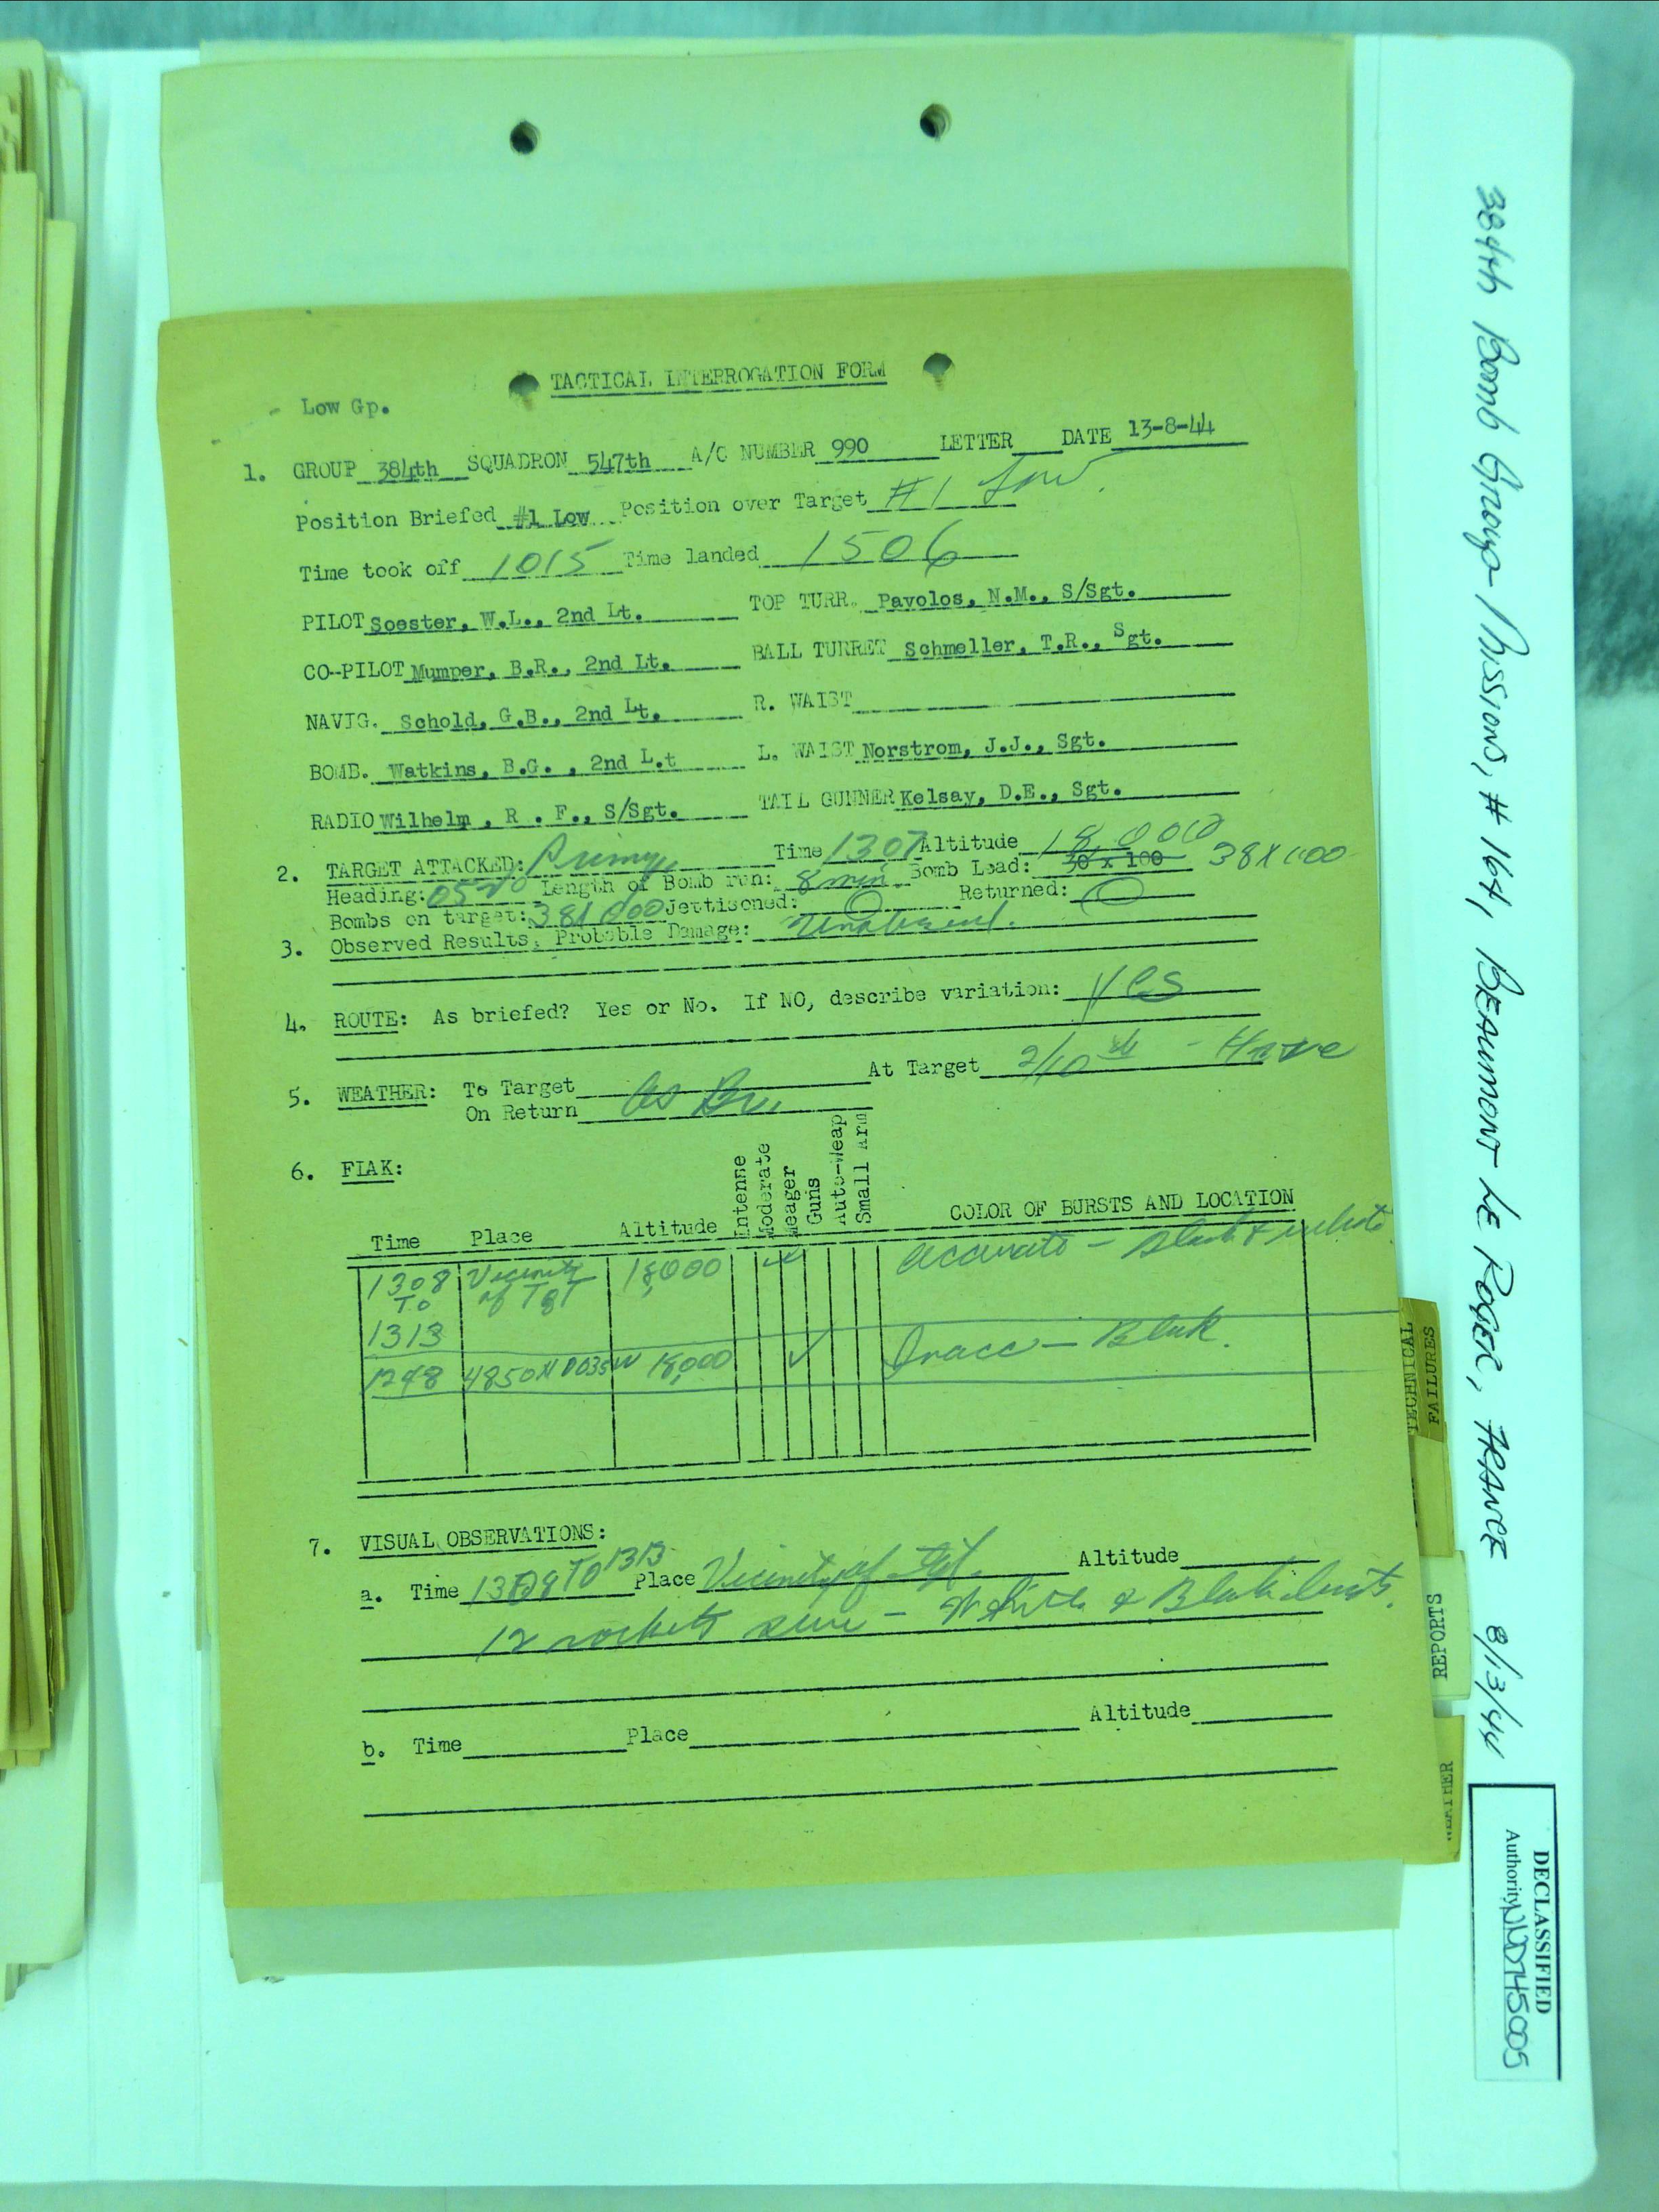 TACTICAL INTERROGATION FORM
Low Gp.
1. GROUP 384th SQUADRON 547th A/C NUMBER 990 LETTER DATE 13-8-44
Position Briefed #1 Low Position over Target #1 Low.
Time took off 1015 Time landed 1506
PILOT Soester, W.L., 2nd Lt. TOP TURR. Pavolos, N.M., S/Sgt.
CO-PILOT Mumper, B.R., 2nd Lt. BALL TURRET Schmeller, T.R., Sgt.
NAVIG. Schold, G.B., 2nd Lt. R. WAIST
BOMB. Watkins, B.G. , 2nd L.t L. WAIST Norstrom, J.J., Sgt.
RADIO Wilhelm , R . F., S/Sgt. TAIL GUNNER Kelsay, D.E., Sgt.
2. TARGET ATTACKED: Time 1307 Altitude 18,000
Heading: Length of Bomb run: 8 min Bomb Load: 38 x 100 38 X 100
Bombs on target: Jettisoned: 0 Returned: 0
3. Observed Results, Probable Damage:
4. ROUTE: As briefed? Yes or No. If NO, describe variation: Yes
5. WEATHER: To Target At Target 2/10
On Return As Br.
6. FlAK:
Intenne
Moderate
Meager
Guns
Auto-Weap
Small Arm
Time Place Altitude COLOR OF BURSTS AND LOCATION
1308 Vicinity 18,000 ✓ accurate - Black & white
To of TgT
1313
1248 4850N 0035W 18,000 ✓ Inacc - Black.
7. VISUAL OBSERVATIONS:
a. Time To 1313 Place Vicinity of Tgt. Altitude
12 rockets seen - White & Black bursts.
b. Time Place Altitude
384th Bomb Group Missions, # 164, BEAUMONT LE ROGER, FRANCE 8/13/44
TECHNICAL
FAILURES
REPORTS
WEATHER
DECLASSIFIED
Authority NND745005